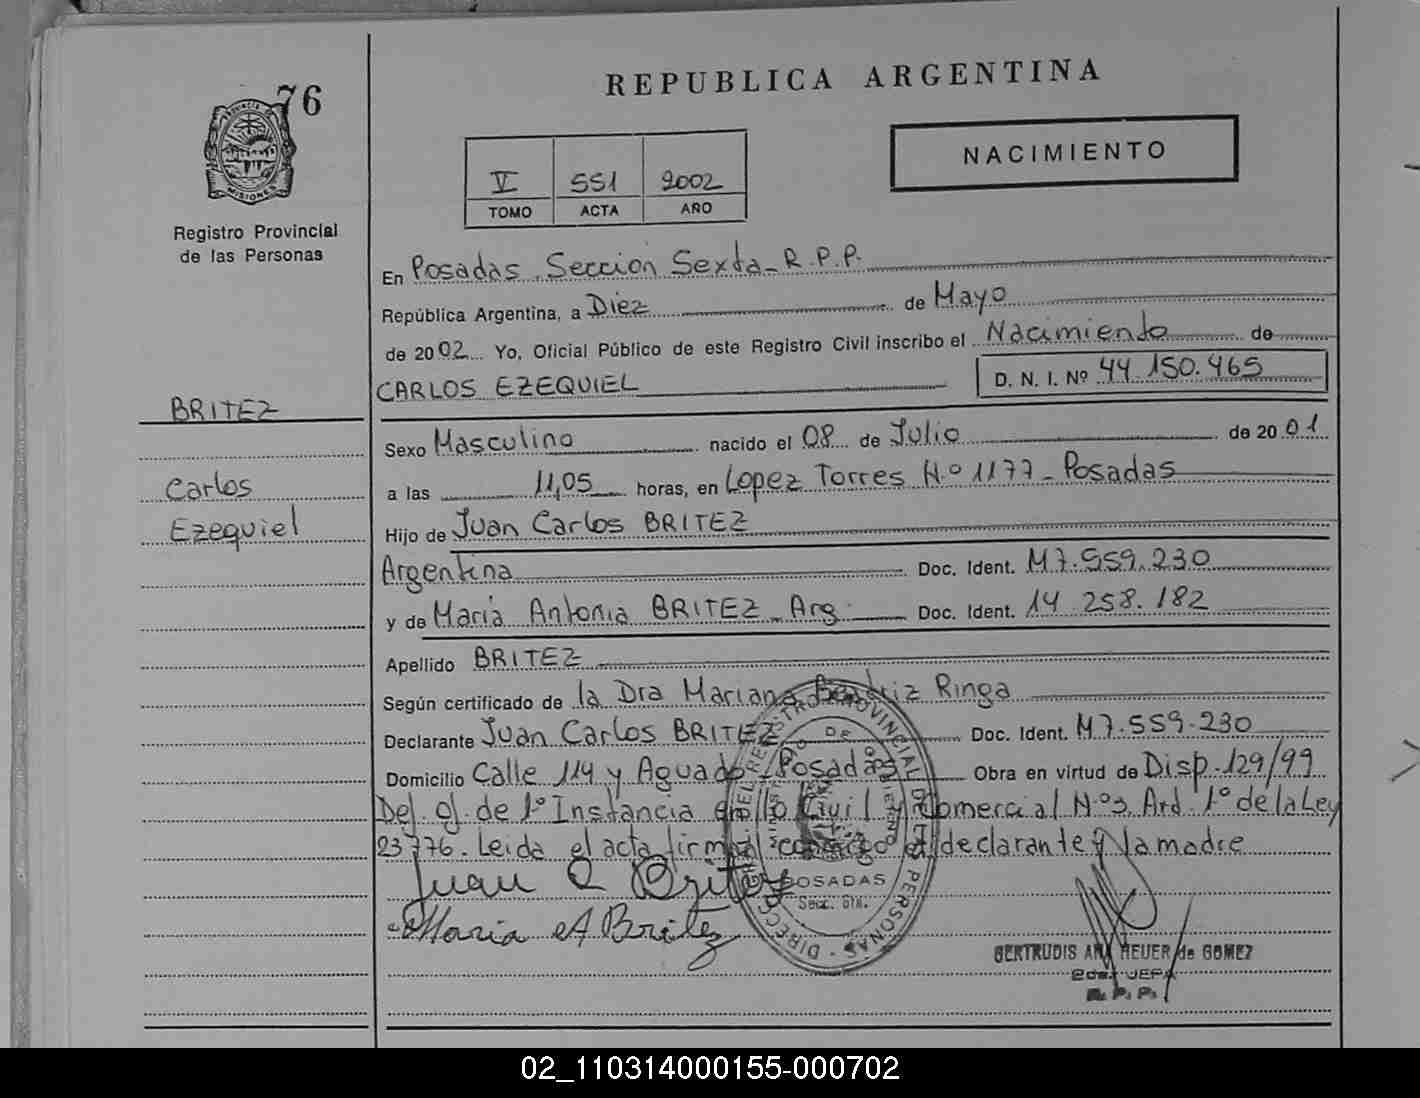 76
PROVINCIA DE
MISIONES
Registro Provincial
de las Personas
BRITEZ
Carlos
Ezequiel
REPUBLICA ARGENTINA
NACIMIENTO
V 551 2002
TOMO ACTA AÑO
En Posadas, Sección Sexta - R.P.P.
República Argentina, a Diez de Mayo
de 2002 Yo, Oficial Público de este Registro Civil inscribo el Nacimiento de
CARLOS EZEQUIEL D. N. I. Nº 44.150.465
Sexo Masculino nacido el 08 de Julio de 2001
a las 11,05 horas, en Lopez Torres N.º 1177 - Posadas
Hijo de Juan Carlos BRITEZ
Argentina Doc. Ident. M7.559.230
y de Maria Antonia BRITEZ - Arg. Doc. Ident. 14.258.182
Apellido BRITEZ
Según certificado de la Dra Mariana Beatriz Ringa
Declarante Juan Carlos BRITEZ Doc. Ident. M7.559.230
Domicilio Calle 114 y Aguado - Posadas Obra en virtud de Disp. 129/99
Def. Of. de 1º Instancia en lo Civil y Comercial Nº3. Ard. 1º de la Ley
23776. Leida el acta firman conmigo el declarante y la madre
Juan C Britez
Maria A Britez
DIRECC. GRAL. DEL REGISTRO PROVINCIAL DE LAS PERSONAS
POSADAS
Secc. 6ta.
GERTRUDIS ANA HEUER de GOMEZ
2da. JEFA
R. P. P.
02_110314000155-000702